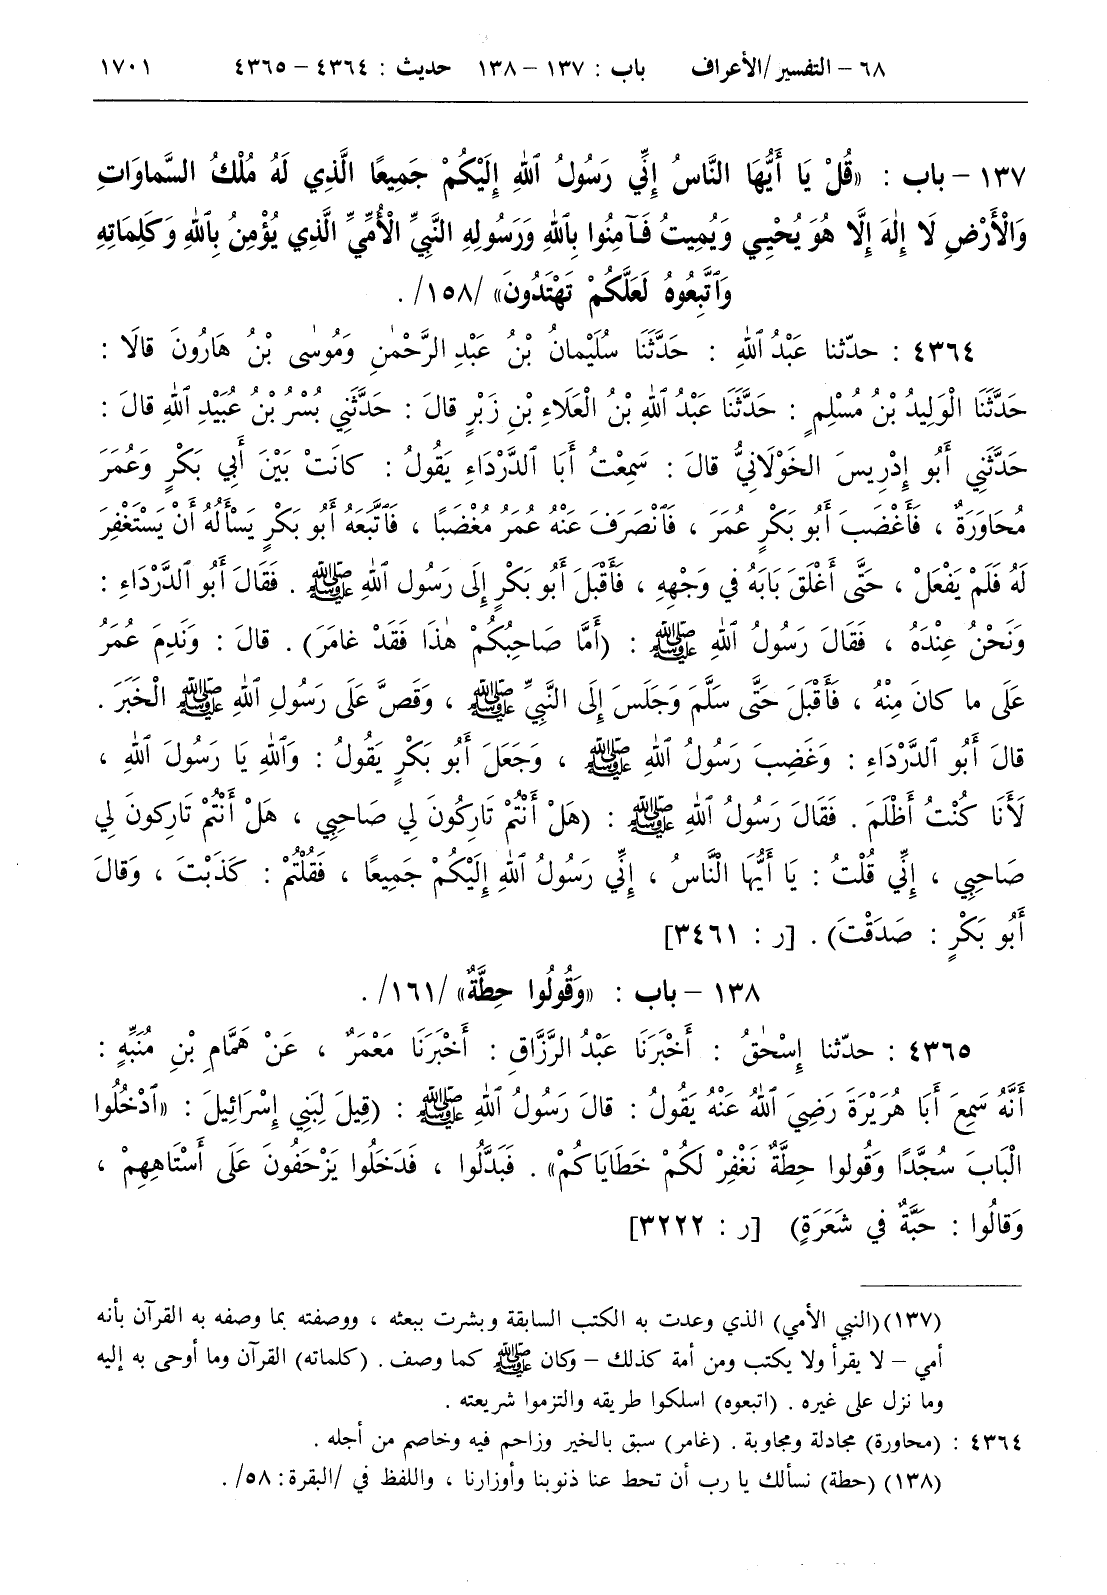 ٦٨ – التفسير/الأعراف باب : ١٣٧ – ١٣٨ حديث : ٤٣٦٤ – ٤٣٦٥ ١٧٠١
١٣٧ – باب : «قُلْ يَا أَيُّهَا النَّاسُ إِنِّي رَسُولُ ٱللهِ إِلَيْكُمْ جَمِيعًا الَّذِي لَهُ مُلْكُ السَّماوَاتِ
وَالْأَرْضِ لَا إِلٰهَ إِلَّا هُوَ يُحْيِي وَيُمِيتُ فَآمِنُوا بِٱللهِ وَرَسُولِهِ النَّبِيِّ الْأُمِّيِّ الَّذِي يُؤْمِنُ بِٱللهِ وَكَلِمَاتِهِ
وَٱتَّبِعُوهُ لَعَلَّكُمْ تَهْتَدُونَ» /١٥٨/ .
٤٣٦٤ : حدّثنا عَبْدُ ٱللهِ : حَدَّثَنَا سُلَيْمانُ بْنُ عَبْدِ الرَّحْمٰنِ وَمُوسٰى بْنُ هَارُونَ قالَا :
حَدَّثَنَا الْوَلِيدُ بْنُ مُسْلِمٍ : حَدَّثَنَا عَبْدُ ٱللهِ بْنُ الْعَلَاءِ بْنِ زَبْرٍ قالَ : حَدَّثَنِي بُسْرُ بْنُ عُبَيْدِ ٱللهِ قالَ :
حَدَّثَنِي أَبُو إِدْرِيسَ الخَوْلَانِيُّ قالَ : سَمِعْتُ أَبَا ٱلدَّرْدَاءِ يَقُولُ : كانَتْ بَيْنَ أَبِي بَكْرٍ وَعُمَرَ
مُحَاوَرَةٌ ، فَأَغْضَبَ أَبُو بَكْرٍ عُمَرَ ، فَٱنْصَرَفَ عَنْهُ عُمَرُ مُغْضَبًا ، فَٱتَّبَعَهُ أَبُو بَكْرٍ يَسْأَلُهُ أَنْ يَسْتَغْفِرَ
لَهُ فَلَمْ يَفْعَلْ ، حَتَّى أَغْلَقَ بَابَهُ في وَجْهِهِ ، فَأَقْبَلَ أَبُو بَكْرٍ إِلَى رَسُولِ ٱللهِ ﷺ . فَقَالَ أَبُو ٱلدَّرْدَاءِ :
وَنَحْنُ عِنْدَهُ ، فَقَالَ رَسُولُ ٱللهِ ﷺ : (أَمَّا صَاحِبُكُمْ هٰذَا فَقَدْ غامَرَ) . قالَ : وَنَدِمَ عُمَرُ
عَلَى ما كانَ مِنْهُ ، فَأَقْبَلَ حَتَّى سَلَّمَ وَجَلَسَ إِلَى النَّبِيِّ ﷺ ، وَقَصَّ عَلَى رَسُولِ ٱللهِ ﷺ الْخَبَرَ .
قالَ أَبُو ٱلدَّرْدَاءِ : وَغَضِبَ رَسُولُ ٱللهِ ﷺ ، وَجَعَلَ أَبُو بَكْرٍ يَقُولُ : وَٱللهِ يَا رَسُولَ ٱللهِ ،
لَأَنَا كُنْتُ أَظْلَمَ . فَقَالَ رَسُولُ ٱللهِ ﷺ : (هَلْ أَنْتُمْ تَارِكُونَ لِي صَاحِبِي ، هَلْ أَنْتُمْ تَارِكونَ لِي
صَاحِبِي ، إِنِّي قُلْتُ : يَا أَيُّهَا الْنَّاسُ ، إِنِّي رَسُولُ ٱللهِ إِلَيْكُمْ جَمِيعًا ، فَقُلْتُمْ : كَذَبْتَ ، وَقالَ
أَبُو بَكْرٍ : صَدَقْتَ) . [ر : ٣٤٦١]
١٣٨ – باب : «وَقُولُوا حِطَّةٌ» /١٦١/ .
٤٣٦٥ : حدّثنا إِسْحٰقُ : أَخْبَرَنَا عَبْدُ الرَّزَّاقِ : أَخْبَرَنَا مَعْمَرٌ ، عَنْ هَمَّامِ بْنِ مُنَبِّهٍ :
أَنَّهُ سَمِعَ أَبَا هُرَيْرَةَ رَضِيَ ٱللهُ عَنْهُ يَقُولُ : قالَ رَسُولُ ٱللهِ ﷺ : (قِيلَ لِبَنِي إِسْرَائِيلَ : «ٱدْخُلُوا
الْبَابَ سُجَّدًا وَقُولوا حِطَّةٌ نَغْفِرْ لَكُمْ خَطَايَاكُمْ» . فَبَدَّلُوا ، فَدَخَلُوا يَزْحَفُونَ عَلَى أَسْتَاهِهِمْ ،
وَقالُوا : حَبَّةٌ في شَعَرَةٍ) [ر : ٣٢٢٢]
(١٣٧)(النبي الأمي) الذي وعدت به الكتب السابقة وبشرت ببعثه ، ووصفته بما وصفه به القرآن بأنه
أمي – لا يقرأ ولا يكتب ومن أمة كذلك – وكان ﷺ كما وصف . (كلماته) القرآن وما أوحى به إليه
وما نزل على غيره . (اتبعوه) اسلكوا طريقه والتزموا شريعته .
٤٣٦٤ : (محاورة) مجادلة ومجاوبة . (غامر) سبق بالخير وزاحم فيه وخاصم من أجله .
(١٣٨) (حطة) نسألك يا رب أن تحط عنا ذنوبنا وأوزارنا ، واللفظ في /البقرة: ٥٨/ .